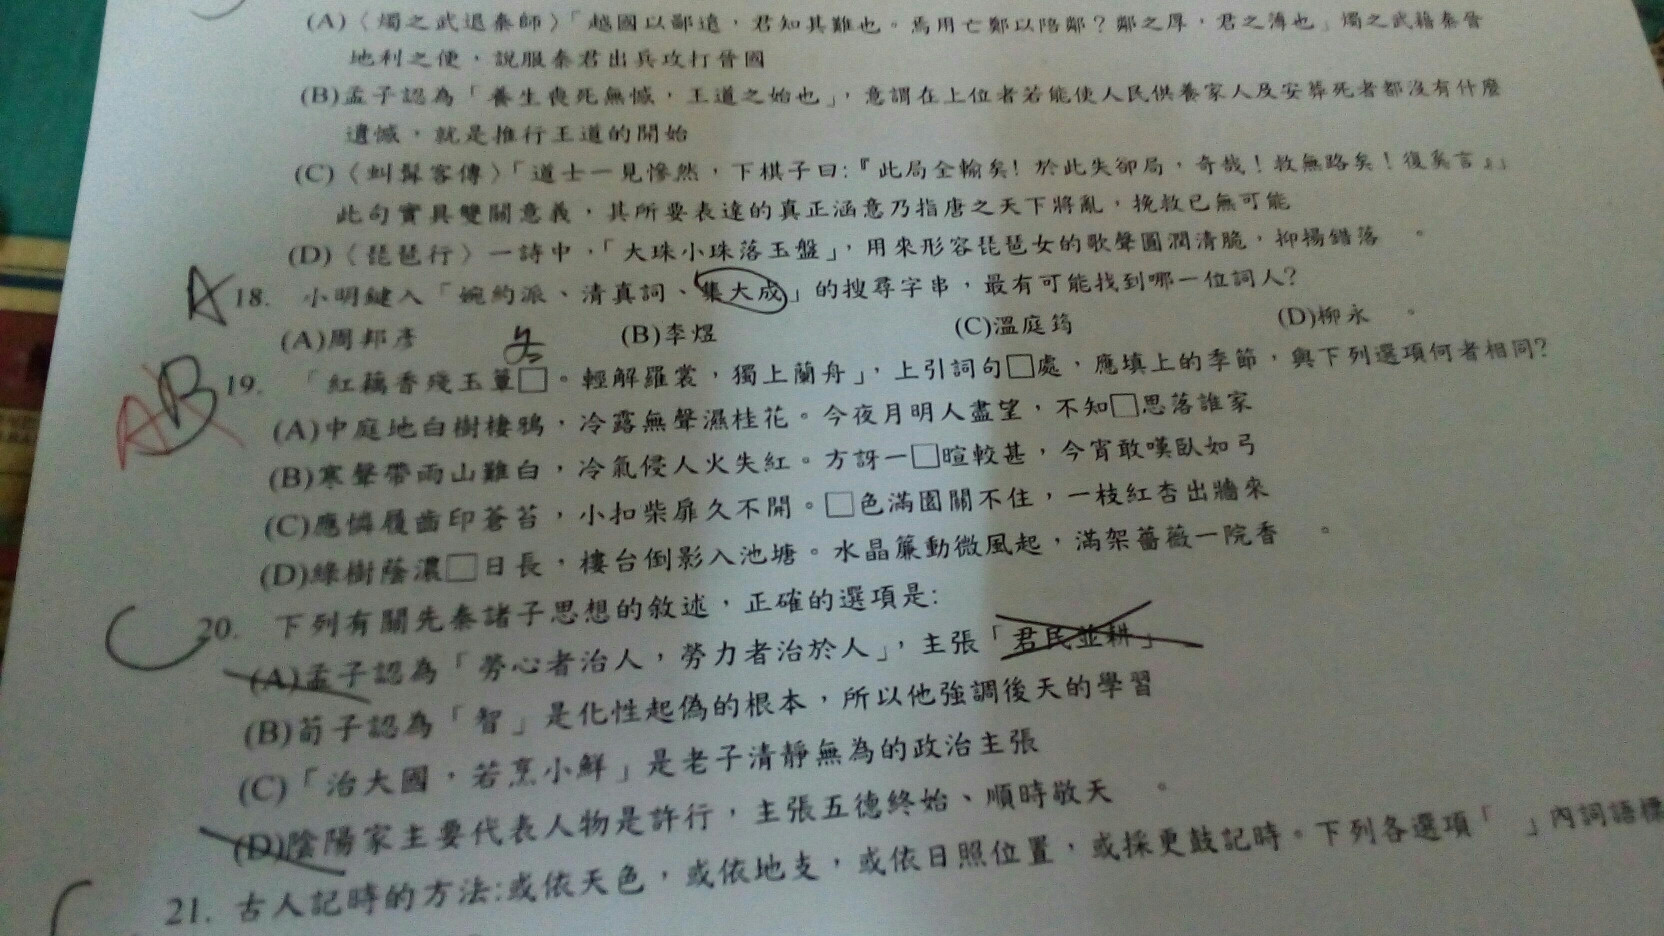 (A)〈燭之武退秦師〉「越國以鄙遠，君知其難也。焉用亡鄭以陪鄰？鄰之厚，君之薄也」燭之武藉秦晉
地利之便，說服秦君出兵攻打晉國
(B)孟子認為「養生喪死無憾，王道之始也」，意謂在上位者若能使人民供養家人及安葬死者都沒有什麼
遺憾，就是推行王道的開始
(C)〈虯髯客傳〉「道士一見慘然，下棋子曰:『此局全輸矣！於此失卻局，奇哉！救無路矣！復奚言』」
此句實具雙關意義，其所要表達的真正涵意乃指唐之天下將亂，挽救已無可能
(D)〈琵琶行〉一詩中，「大珠小珠落玉盤」，用來形容琵琶女的歌聲圓潤清脆，抑揚錯落 。
A 18. 小明鍵入「婉約派、清真詞、集大成」的搜尋字串，最有可能找到哪一位詞人？
(A)周邦彥 (B)李煜 (C)溫庭筠 (D)柳永 。
AB 19. 「紅藕香殘玉簟□。輕解羅裳，獨上蘭舟」，上引詞句□處，應填上的季節，與下列選項何者相同？
(A)中庭地白樹棲鴉，冷露無聲濕桂花。今夜月明人盡望，不知□思落誰家
(B)寒聲帶雨山難白，冷氣侵人火失紅。方訝一□暄較甚，今宵敢嘆臥如弓
(C)應憐屐齒印蒼苔，小扣柴扉久不開。□色滿園關不住，一枝紅杏出牆來
(D)綠樹蔭濃□日長，樓台倒影入池塘。水晶簾動微風起，滿架薔薇一院香 。
C 20. 下列有關先秦諸子思想的敘述，正確的選項是:
(A)孟子認為「勞心者治人，勞力者治於人」，主張「君民並耕」
(B)荀子認為「智」是化性起偽的根本，所以他強調後天的學習
(C)「治大國，若烹小鮮」是老子清靜無為的政治主張
(D)陰陽家主要代表人物是許行，主張五德終始、順時敬天 。
21. 古人記時的方法:或依天色，或依地支，或依日照位置，或採更鼓記時。下列各選項「 」內詞語標